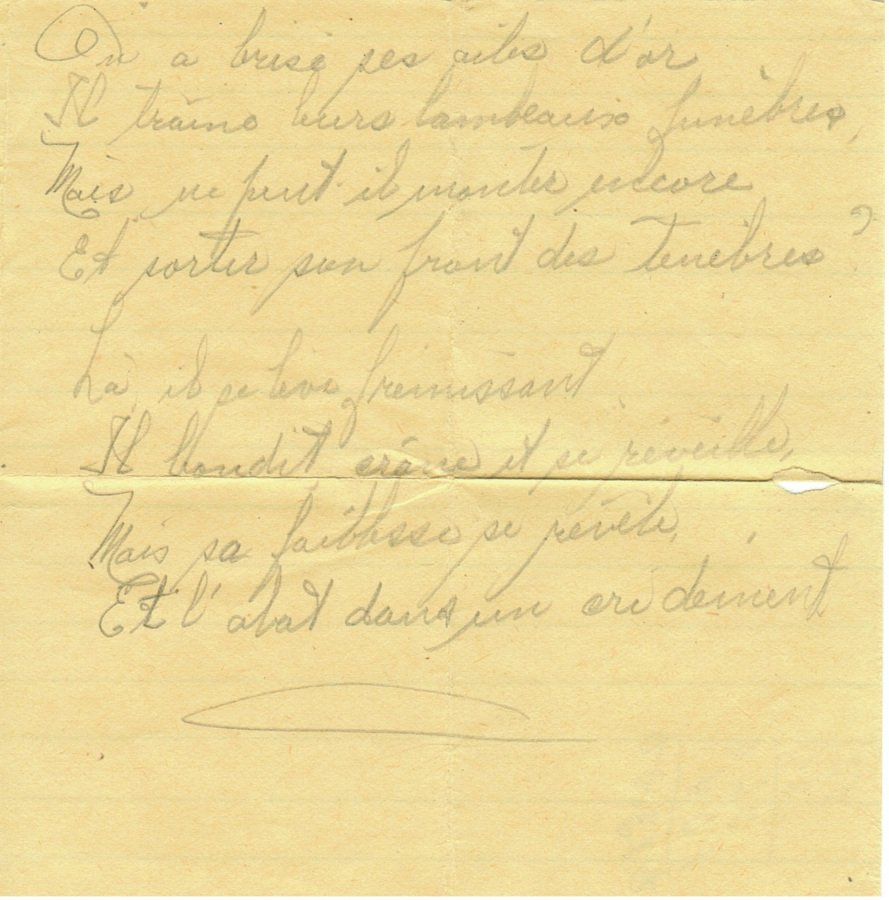 On a brisé ses ailes d'or
Il traîne leurs lambeaux funèbres,
Mais ne peut-il monter encore
Et sortir son front des tenèbres?
Là, il se lève frémissant
Il bondit, crâne et se réveille,
Mais sa faiblesse se révèle,
Et l'abat dans un cri dément